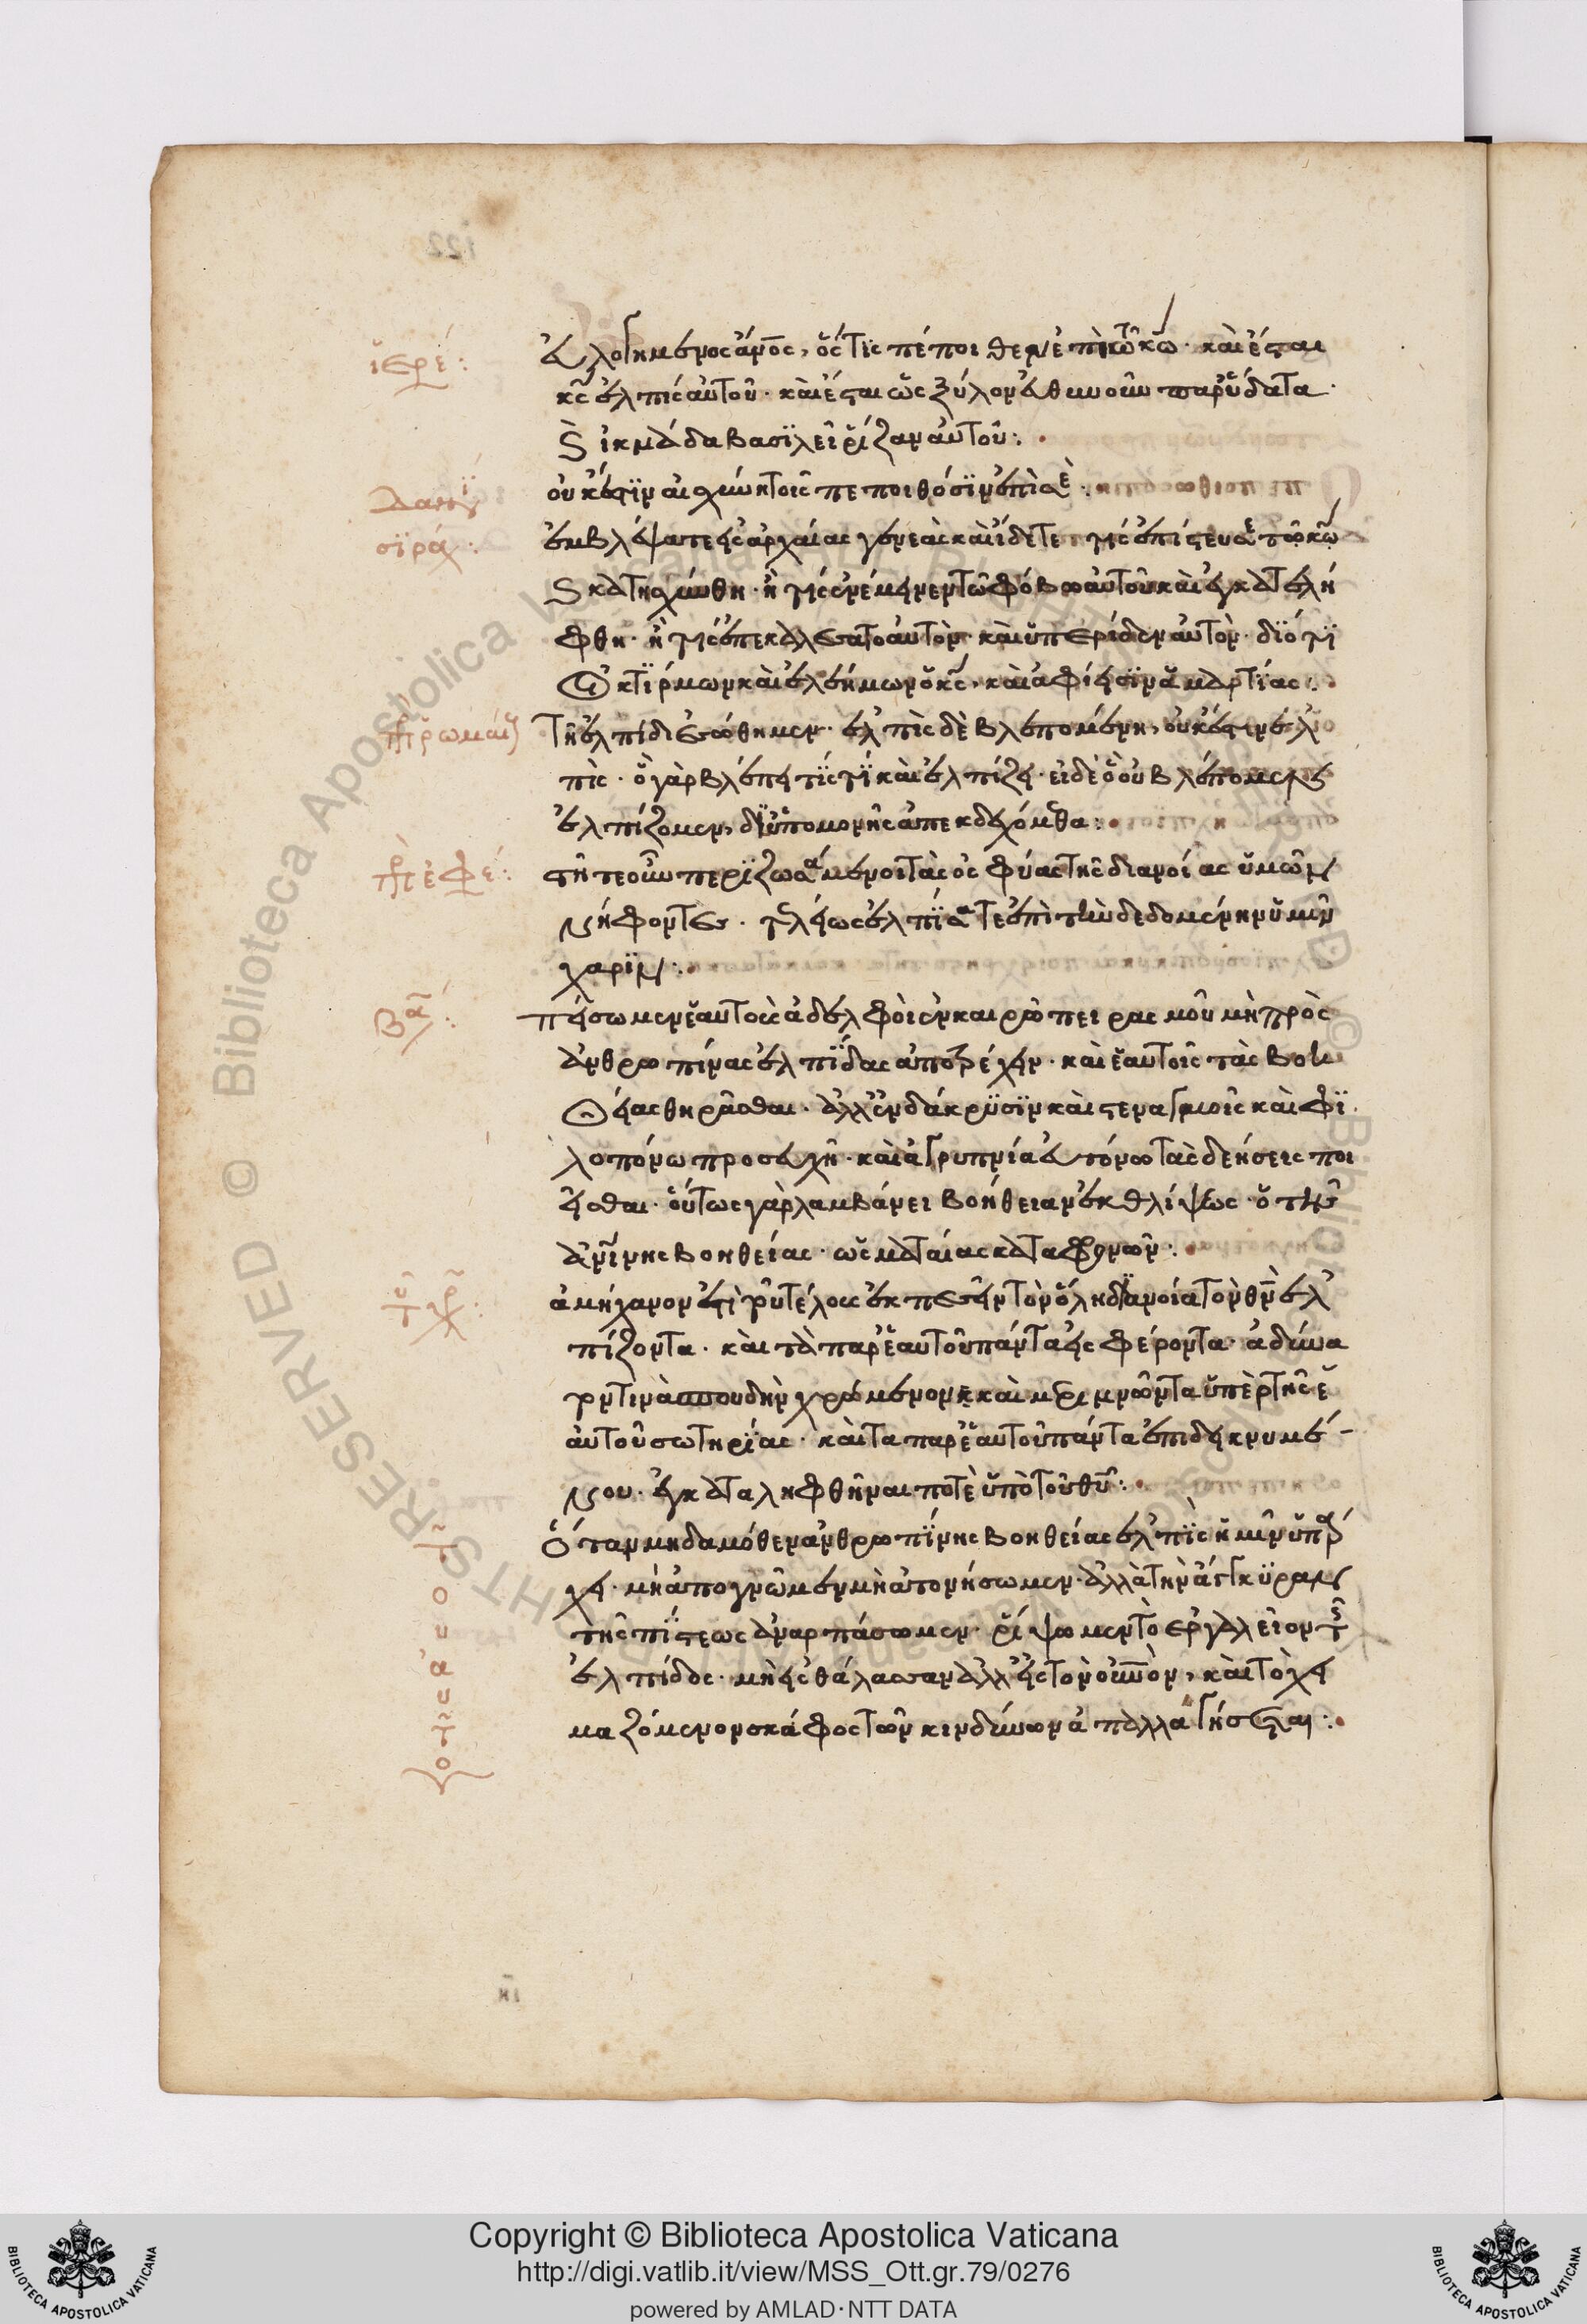 ἱερε:
εὐλογημένος ἄνος, ὅς τις πέποιθεν ἐπὶ τῶ κω· καὶ ἔσται
κς ἐλπὶς αὐτοῦ· καὶ ἔσται ὡς ξύλον εὐθηνοῦν παρ' ὕδατα·
καὶ ἰκμάδα βασϊλεῖ ῥίζαν αὐτοῦ:
Δανι
οὐκ ἔστϊν αἰσχύνη τοῖς πεποιθόσϊν ἐπὶ σέ:
σϊράχ:
ἐμβλέψατε εἰς ἀρχαίας γενεὰς καὶ ἴδετε τίς ἐπίστευσε τῶ κω
καὶ κατησχύνθη· ἢ τίς ἐνέμεινεν τῶ φόβω αὐτοῦ καὶ ἐγκατελή
φθη· ἢ τίς ἐπεκαλέσατο αὐτὸν· καὶ ὑπερίδεν αὐτὸν· διότι
οἰκτίρμων καὶ ἐλεήμων ὁ κς, καὶ ἀφίησϊν ἁμαρτίας:
πρ ῥωμαί
Τῆ ἐλπίδι ἐσώθημεν· ἐλπὶς δὲ βλεπομένη, οὐκ ἔστιν ἐλ
πὶς· ὃ γὰρ βλέπει τίς τί καὶ ἐλπίζει· εἰ δὲ ὃ οὐ βλέπομεν
ἐλπίζομεν, δι' ὑπομονῆς ἀπεκδεχόμεθα:
πρ ἐφε:
στῆτε οὖν περιζωσάμενοι τὰς ὀσφύας τῆς διανοίας ὑμῶν
νήφοντες· τελείως ἐλπίσατε ἐπὶ τὴν δεδομένην ὑμῖν
χαρϊν:
Βα:
πείσωμεν ἑαυτοὺς ἀδελφοὶ ἐν καιρῶ πειρασμοῦ μὴ πρὸς
ἀνθρωπίνας ἐλπίδας ἀποτρέχειν· καὶ ἑαυτοῖς τὰς βοη
θείας θηρᾶσθαι· ἀλλ' ἐν δάκρυσϊν καὶ στεναγμοῖς καὶ φϊ
λοπόνω προσευχῆ· καὶ ἀγρυπνία εὐτόνω τὰς δεήσεις ποι
εῖσθαι· οὕτως γὰρ λαμβάνει βοήθειαν ἐκ θλίψεως· ὁ τῆς
ἀνίνης βοηθείας· ὡς ματαίας καταφρονῶν:
τοῦ χρ:
ἀμήχανον ἐστὶ τοῦ τέλους ἐκπεσεῖν τὸν ὅλη διανοία τὸν θν ἐλ
πίζοντα· καὶ τὰ παρ' ἑαυτοῦ πάντα εἰσφέροντα· ἀδύνα
τον τινὰ σπουδὴν χρώμενον καὶ μεριμνῶντα ὑπὲρ τῆς ἑ
αὐτοῦ σωτηρίας· καὶ τὰ παρ' ἑαυτοῦ πάντα ἐπιδεικνυμέ-
νου· ἐγκαταληφθῆναι ποτὲ ὑπὸ τοῦ θυ:
τοῦ αὐτοῦ
Ὅταν μηδαμόθεν ἀνθρωπίνης βοηθείας ἐλπὶς ἡμῖν ὑπάρ
χει· μὴ ἀπογνῶμεν μὴ ἀπονήσωμεν· ἀλλὰ τὴν ἄγκϋραν
τῆς πίστεως ἀναρπάσωμεν· ῥίψωμεν τὸ ἐργαλεῖον τῆς
ἐλπίδος· μὴ εἰς θάλασσαν ἀλλ' εἰς τὸν οὐνὸν, καὶ τὸ χει
μαζόμενον σκάφος τῶν κινδύνων ἀπαλλαγήσεται:
Copyright © Biblioteca Apostolica Vaticana
http://digi.vatlib.it/view/MSS_Ott.gr.79/0276
powered by AMLAD·NTT DATA